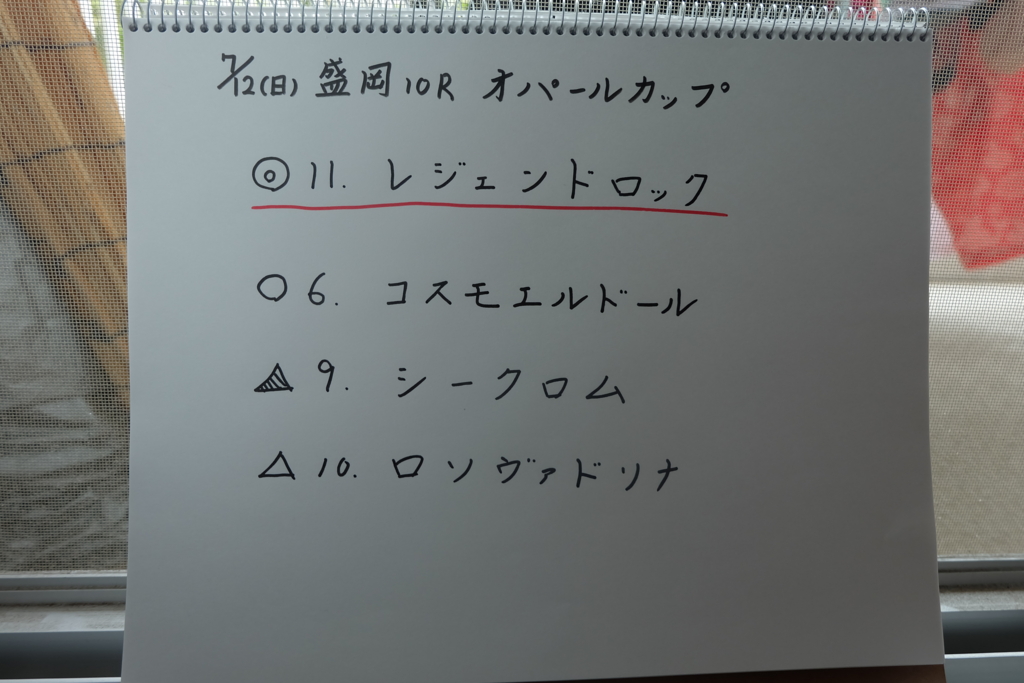 7/12(日) 盛岡10R オパールカップ
◎ 11. レジェンドロック
○ 6. コスモエルドール
▲ 9. シークロム
△ 10. ロソヴァドリナ